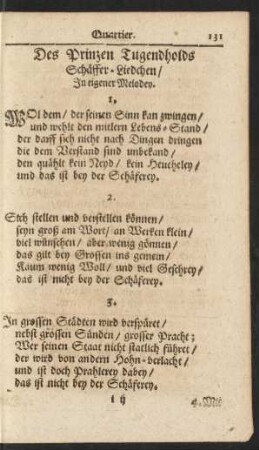 Quartier. 131
Des Prinzen Tugendholds
Schäffer-Liedchen/
In eigener Melodey.
1.
WOl dem/ der seinen Sinn kan zwingen/
und wehlt den mitlern Lebens-Stand/
der darff sich nicht nach Dingen dringen
die dem Verstand sind unbekand/
den quählt kein Neyd/ kein Heucheley/
und das ist bey der Schäferey.
2.
Sich stellen und verstellen können/
seyn groß am Wort/ an Werken klein/
viel wünschen/ aber wenig gönnen/
das gilt bey Grossen ins gemein/
Kaum wenig Woll/ und viel Geschrey/
das ist nicht bey der Schäferey.
3.
In grossen Städten wird verspüret/
nebst grossen Sünden/ grosser Pracht;
Wer seinen Staat nicht statlich führet/
der wird von andern Hohn-verlacht/
und ist doch Prahlerey dabey/
das ist nicht bey der Schäferey.
i ij 4. Mit